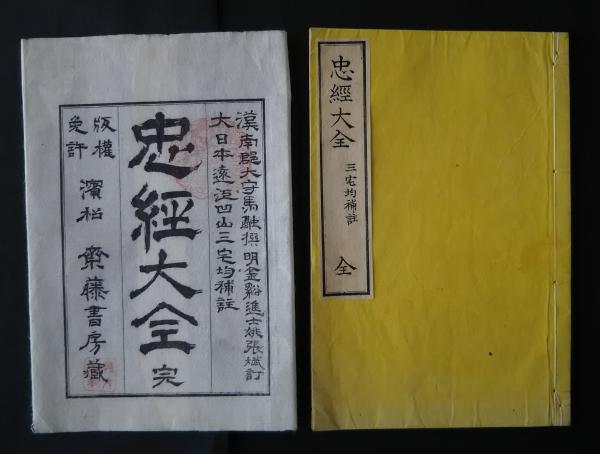 漢南郡大守馬融撰 明金谿進士姚張斌訂
大日本遠江凹山三宅均補註
忠經大全 完
版權免許 濱松 齋藤書房藏
忠經大全 三宅均補註 全